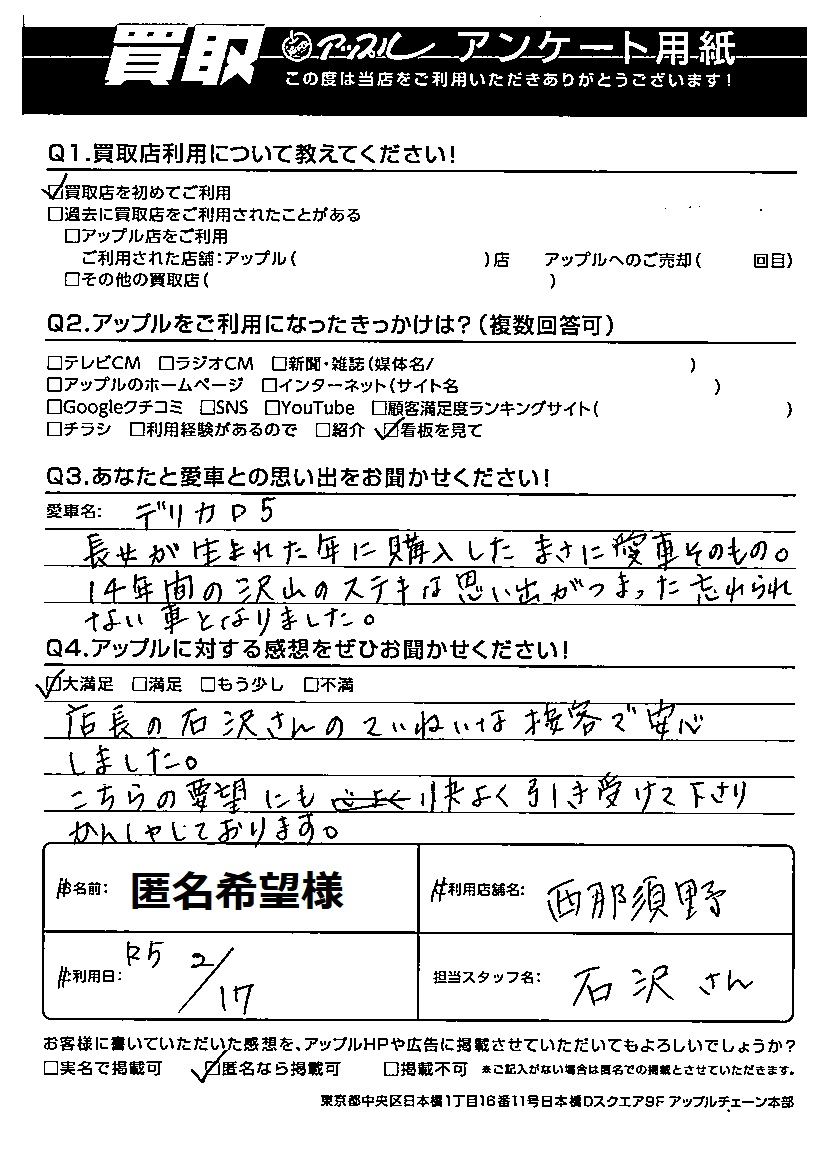 買取 アップル アンケート用紙
この度は当店をご利用いただきありがとうございます！
Q1.買取店利用について教えてください！
☑買取店を初めてご利用
□過去に買取店をご利用されたことがある
□アップル店をご利用
ご利用された店舗：アップル（　　　）店　アップルへのご売却（　　　回目）
□その他の買取店（　　　）
Q2.アップルをご利用になったきっかけは？（複数回答可）
□テレビCM □ラジオCM □新聞・雑誌（媒体名/　　　）
□アップルのホームページ □インターネット（サイト名　　　）
□Googleクチコミ □SNS □YouTube □顧客満足度ランキングサイト（　　　）
□チラシ □利用経験があるので □紹介 ☑看板を見て
Q3.あなたと愛車との思い出をお聞かせください！
愛車名： デリカD5
長女が生まれた年に購入したまさに愛車そのもの。
14年間の沢山のステキな思い出がつまった忘れられ
ない車となりました。
Q4.アップルに対する感想をぜひお聞かせください！
☑大満足 □満足 □もう少し □不満
店長の石沢さんのていねいな接客で安心
しました。
こちらの要望にも 快よく引き受けて下さり
かんしゃしております。
名前： 匿名希望様
利用店舗名： 西那須野
利用日： R5 2/17
担当スタッフ名： 石沢さん
お客様に書いていただいた感想を、アップルHPや広告に掲載させていただいてもよろしいでしょうか？
□実名で掲載可 ☑匿名なら掲載可 □掲載不可 ※ご記入がない場合は匿名での掲載とさせていただきます。
東京都中央区日本橋1丁目16番11号日本橋Dスクエア9F アップルチェーン本部